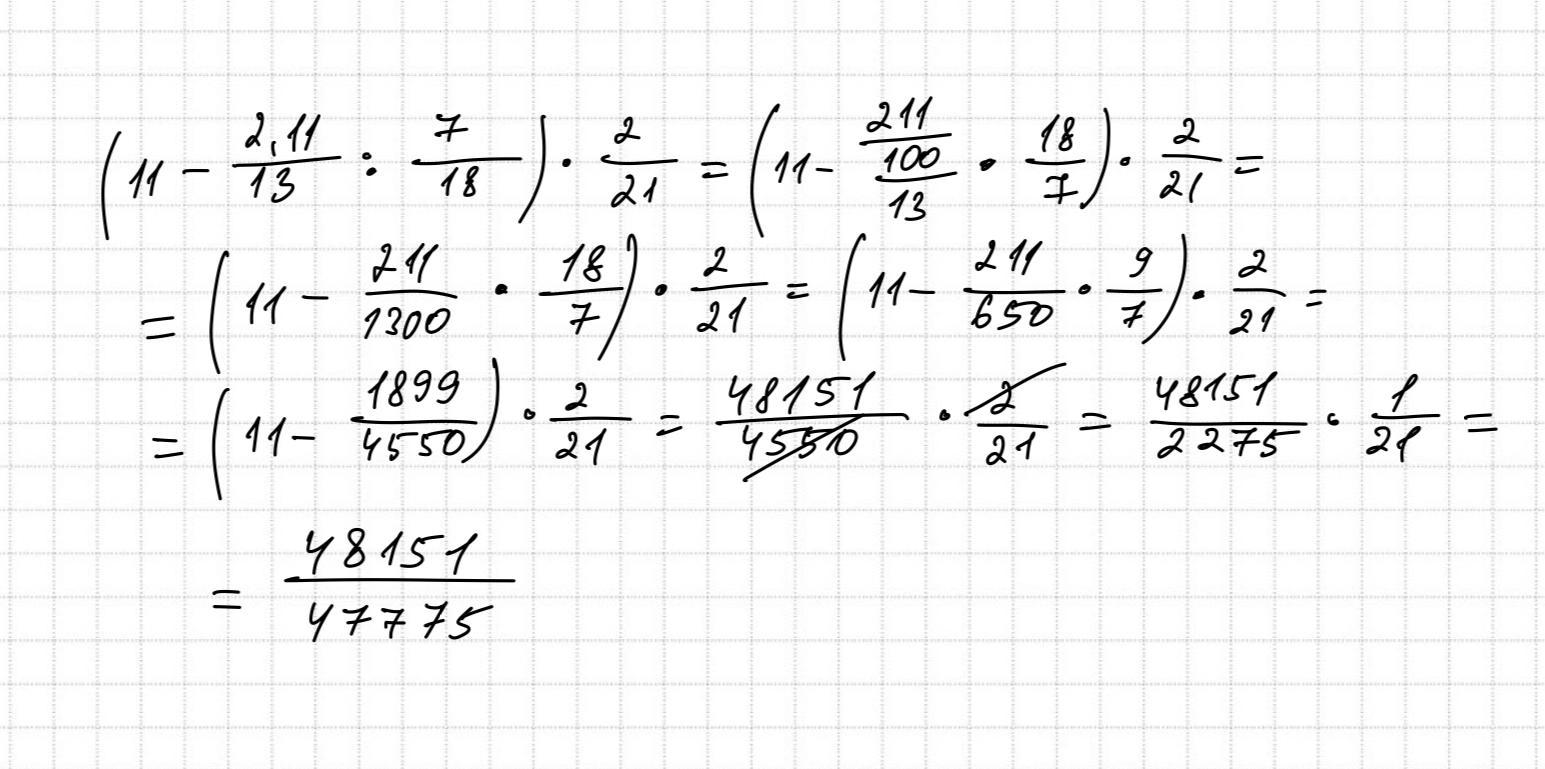 (11 - 2,11/13 : 7/18) · 2/21 = (11 - 211/100/13 · 18/7) · 2/21 =
= (11 - 211/1300 · 18/7) · 2/21 = (11 - 211/650 · 9/7) · 2/21 =
= (11 - 1899/4550) · 2/21 = 48151/4550 · 2/21 = 48151/2275 · 1/21 =
= 48151/47775